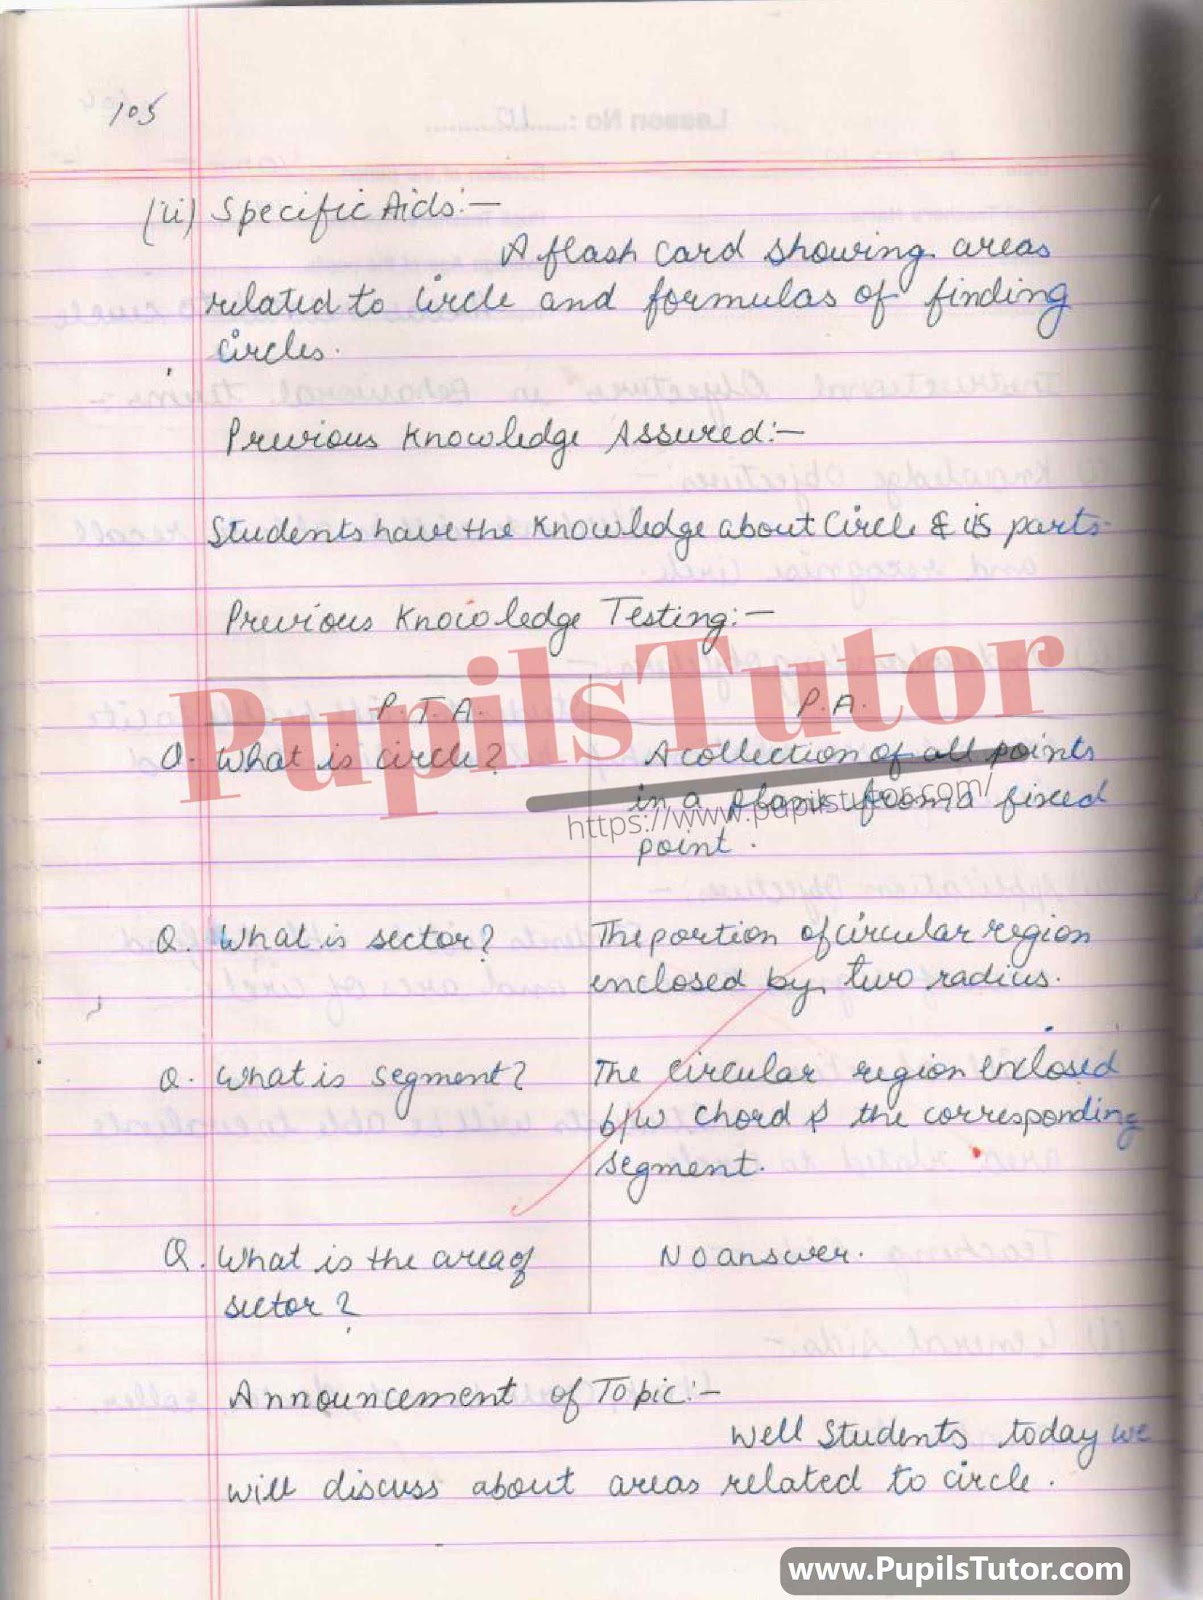 105
(ii) Specific Aids:-
A flash card showing areas
related to circle and formulas of finding
circles.
Previous Knowledge Assured:-
Students have the knowledge about circle & its parts.
Previous Knowledge Testing:-
PupilsTutor
P.T.A. P.A.
Q. What is circle? A collection of all points
in a plane from a fixed
https://www.pupilstutor.com/
point.
Q. What is sector? The portion of circular region
enclosed by two radius.
Q. What is segment? The circular region enclosed
b/w chord & the corresponding
segment.
Q. What is the area of No answer.
sector?
Announcement of Topic:-
Well Students today we
will discuss about areas related to circle.
www.PupilsTutor.com